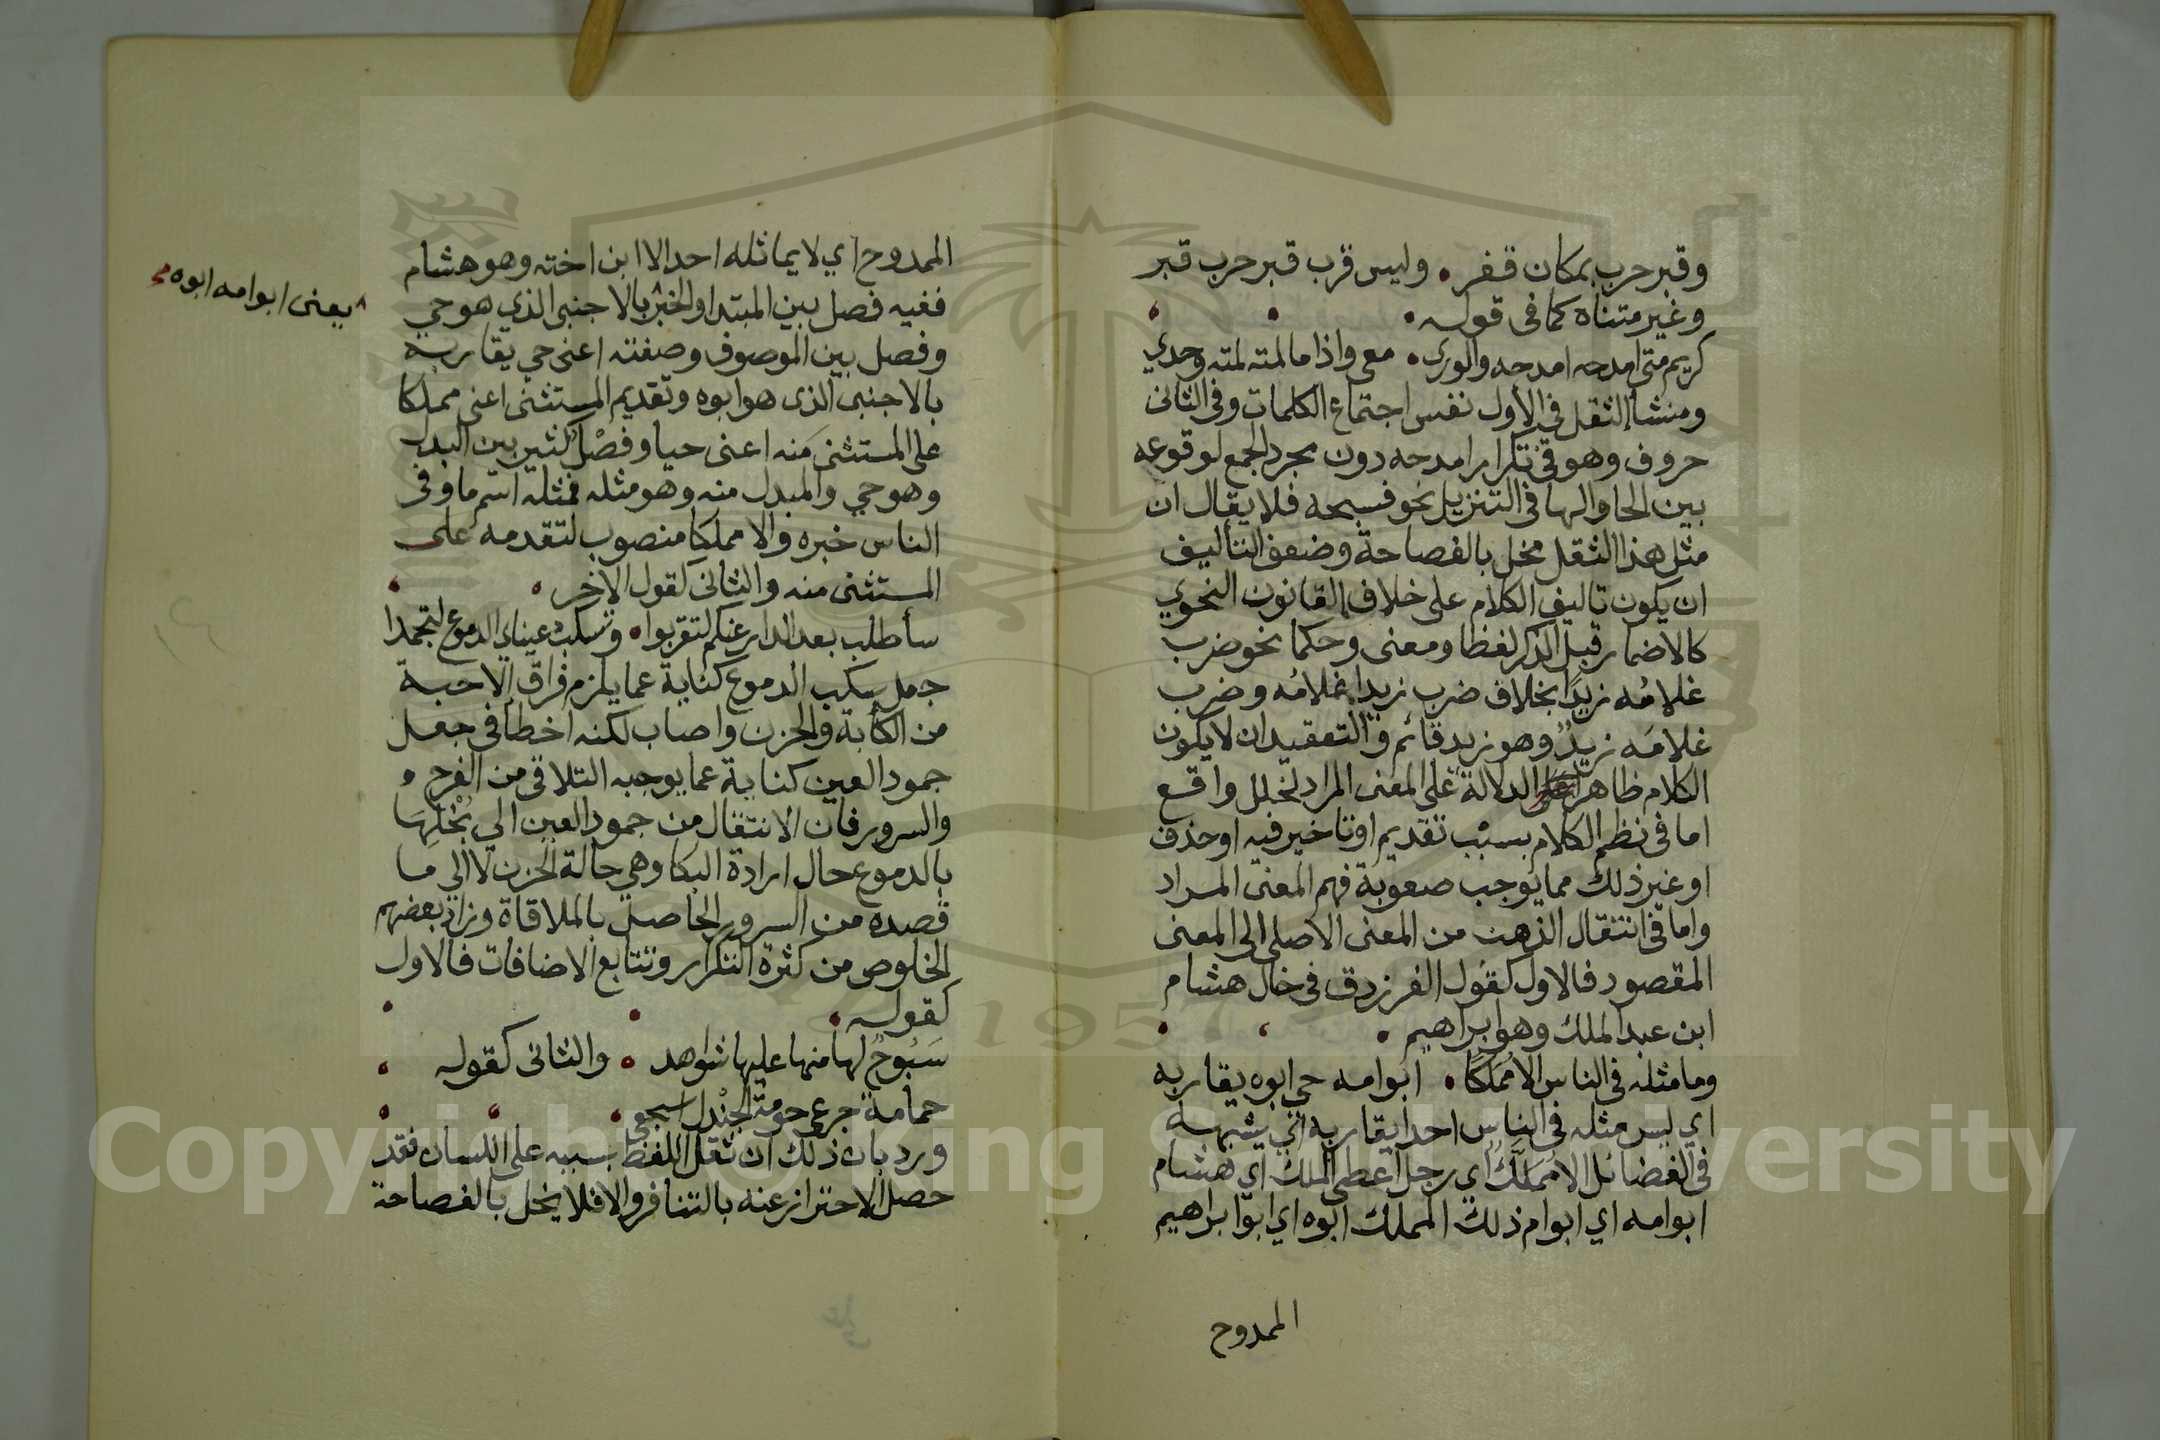 وقبر حرب بمكان قفر • وليس قرب قبر حرب قبر
وغير متناه كما في قوله •
كريم متى امدحه امدحه والورى • معى واذا ما لمته لمته وحدي
ومنشأ الثقل في الاول نفس اجتماع الكلمات وفي الثانى
حروف وهو في تكرار امدحه دون مجرد الجمع لوقوعه
بين الحا والها في التنزيل نحو فسبحه فلا يقال ان
مثل هذا الثقل مخل بالفصاحة وضعف التأليف
ان يكون تاليف الكلام على خلاف القانون النحوي
كالاضمار قبل الذكر لفظا ومعنى وحكما نحو ضرب
غلامُه زيدًا بخلاف ضرب زيدا غلامُه وضرب
غلامَه زيدٌ وهو زيد قائم والتعقيد ان لا يكون
الكلام ظاهر الدلالة على المعنى المراد لخلل واقع
اما في نظم الكلام بسبب تقديم او تاخير فيه او حذف
او غير ذلك مما يوجب صعوبة فهم المعنى المراد
واما في انتقال الذهن من المعنى الاصلى الى المعنى
المقصود فالاول كقول الفرزدق في خال هشام
ابن عبد الملك وهو ابراهيم •
وما مثله في الناس الا مُمَلكًا • ابوامه حي ابوه يقاربه
اي ليس مثله في الناس احد يقاربه اي يشبهه
في الفضائل الا مُمَلَّكٌ اي رجل اعطى الملك اي هشام
ابوامه اي ابوام ذلك المملك ابوه اي ابوا ابراهيم
الممدوح
الممدوح اي لا يماثله احد الا ابن اخته وهو هشام
ففيه فصل بين المبتدا والخبر بالاجنبى الذي هو حي
يعنى ابوامه ابوه
وفصل بين الموصوف وصفته اعنى حي يقاربه
بالاجنبى الذى هو ابوه وتقديم المستثنى اعنى مملكا
على المستثنى منه اعنى حيا وفصْل كثير بين البدل
وهو حي والمبدل منه وهو مثله فمثله اسم ما وفي
الناس خبره والا مملكا منصوب لتقدمه على
المستثنى منه والثانى لقول الاخر •
سأطلب بعد الدار عنكم لتقربوا • وتسكب عيناي الدموع لتجمدا
جعل سكب الدموع كناية عما يلزم فراق الاحبة
من الكأبة والحزن واصاب لكنه اخطا في جعل
جمود العين كناية عما يوجبه التلاقى من الفرح
والسرور فان الانتقال من جمود العين الي بُخْلِهَا
بالدموع حال ارادة البكا وهي حالة الحزن لا الي ما
قصده من السرور الحاصل بالملاقاة وزاد بعضهم
الخلوص من كثرة التكرار وتتابع الاضافات فالاول
كقوله •
سَبُوحٌ لها منها عليها شواهد • والثانى كقوله
حمامة جرعى حومة الجندل اسجعى •
ورد بان ذلك ان ثقل اللفظ بسببه على اللسان فقد
حصل الاحتراز عنه بالتنافر والا فلا يخل بالفصاحة
Copyright © King Saud University
1957